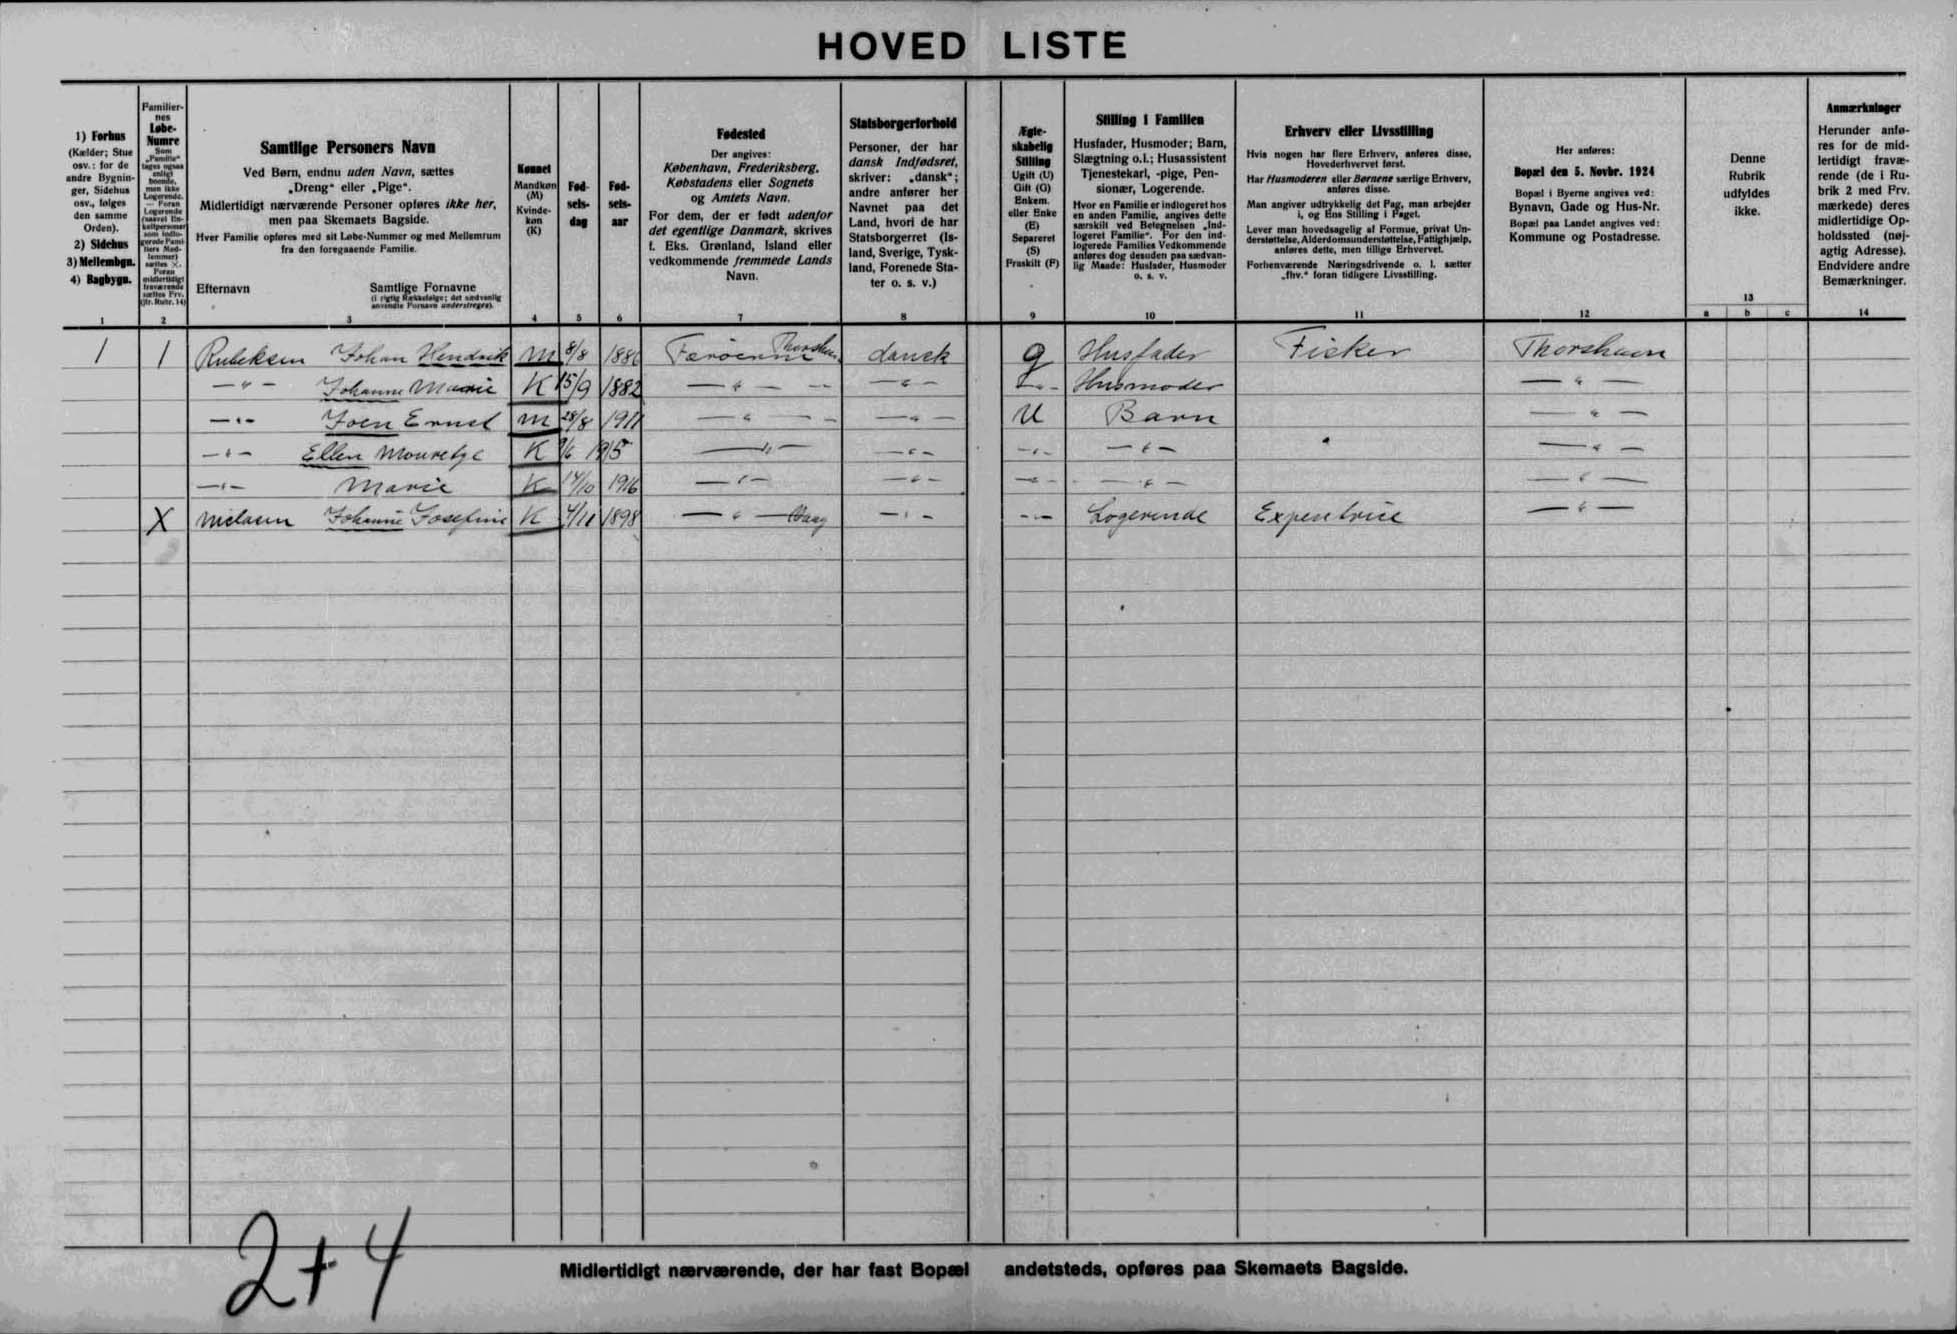 HOVED LISTE
1) Forhus
(Kælder; Stue
osv.: for de
andre Bygnin-
ger, Sidehus
osv., følges
den samme
Orden).
2) Sidehus
3) Mellembgn.
4) Bagbygn.
1
Familier-
nes
Løbe-
Numre
Som
„Familie“
tages ogsaa
enligt
boende,
men ikke
Logerende.
— Foran
Logerende
sættes ×.
Foran
midlertidigt
fraværende
sættes Frv.
(jfr. Rubr. 14)
2
Samtlige Personers Navn
Ved Børn, endnu uden Navn, sættes
„Dreng“ eller „Pige“.
Midlertidigt nærværende Personer opføres ikke her,
men paa Skemaets Bagside.
Hver Familie opføres med sit Løbe-Nummer og med Mellemrum
fra den foregaaende Familie.
Efternavn
Samtlige Fornavne
(i rigtig Rækkefølge; det sædvanlig
anvendte Fornavn understreges).
3
Kønnet
Mandkøn
(M)
Kvinde-
køn
(K)
4
Fød-
sels-
dag
5
Fød-
sels-
aar
6
Fødested
Der angives:
København, Frederiksberg,
Købstadens eller Sognets
og Amtets Navn.
For dem, der er født udenfor
det egentlige Danmark, skrives
f. Eks. Grønland, Island eller
vedkommende fremmede Lands
Navn.
7
Statsborgerforhold
Personer, der har
dansk Indfødsret,
skriver: „dansk“;
andre anfører her
Navnet paa det
Land, hvori de har
Statsborgerret (Is-
land, Sverige, Tysk-
land, Forenede Sta-
ter o. s. v.)
8
Ægte-
skabelig
Stilling
Ugift (U)
Gift (G)
Enkem.
eller Enke
(E)
Separeret
(S)
Fraskilt (F)
9
Stilling i Familien
Husfader, Husmoder; Barn,
Slægtning o.l.; Husassistent
Tjenestekarl, -pige, Pen-
sionær, Logerende.
Hvor en Familie er indlogeret hos
en anden Familie, angives dette
særskilt ved Betegnelsen „Ind-
logeret Familie“. For den ind-
logerede Families Vedkommende
anføres dog desuden paa sædvan-
lig Maade: Husfader, Husmoder
o. s. v.
10
Erhverv eller Livsstilling
Hvis nogen har flere Erhverv, anføres disse,
Hovederhvervet først.
Har Husmoderen eller Børnene særlige Erhverv,
anføres disse.
Man angiver udtrykkelig det Fag, man arbejder
i, og Ens Stilling i Faget.
Lever man hovedsagelig af Formue, privat Un-
derstøttelse, Alderdomsunderstøttelse, Fattighjælp,
anføres dette, men tillige Erhvervet.
Forhenværende Næringsdrivende o. l. sætter
„fhv.“ foran tidligere Livsstilling.
11
Her anføres:
Bopæl den 5. Novbr. 1924
Bopæl i Byerne angives ved:
Bynavn, Gade og Hus-Nr.
Bopæl paa Landet angives ved:
Kommune og Postadresse.
12
Denne
Rubrik
udfyldes
ikke.
13
a b c
Anmærkninger
Herunder anfø-
res for de mid-
lertidigt fravæ-
rende (de i Ru-
brik 2 med Frv.
mærkede) deres
midlertidige Op-
holdssted (nøj-
agtig Adresse).
Endvidere andre
Bemærkninger.
14
1 1 Rubeksen Johan Hendrik M 8/8 1886 Færøerne Thorshavn dansk g Husfader Fisker Thorshavn
— " — Johanne Marie K 15/9 1882 — " — — — " — — " — Husmoder — " —
— " — Joen Ernst M 28/8 1911 — " — — — " — U Barn — " —
— " — Ellen K 1915 — " — — " — — " — — " — — " —
— " — Marie K 1916 — " — — " — — " — — " — — " —
X Nielsen Johanne Josefine K 4/11 1898 — " — Vaag — " — — " — Logerende Expeditrice — " —
Midlertidigt nærværende, der har fast Bopæl andetsteds, opføres paa Skemaets Bagside.
2+4